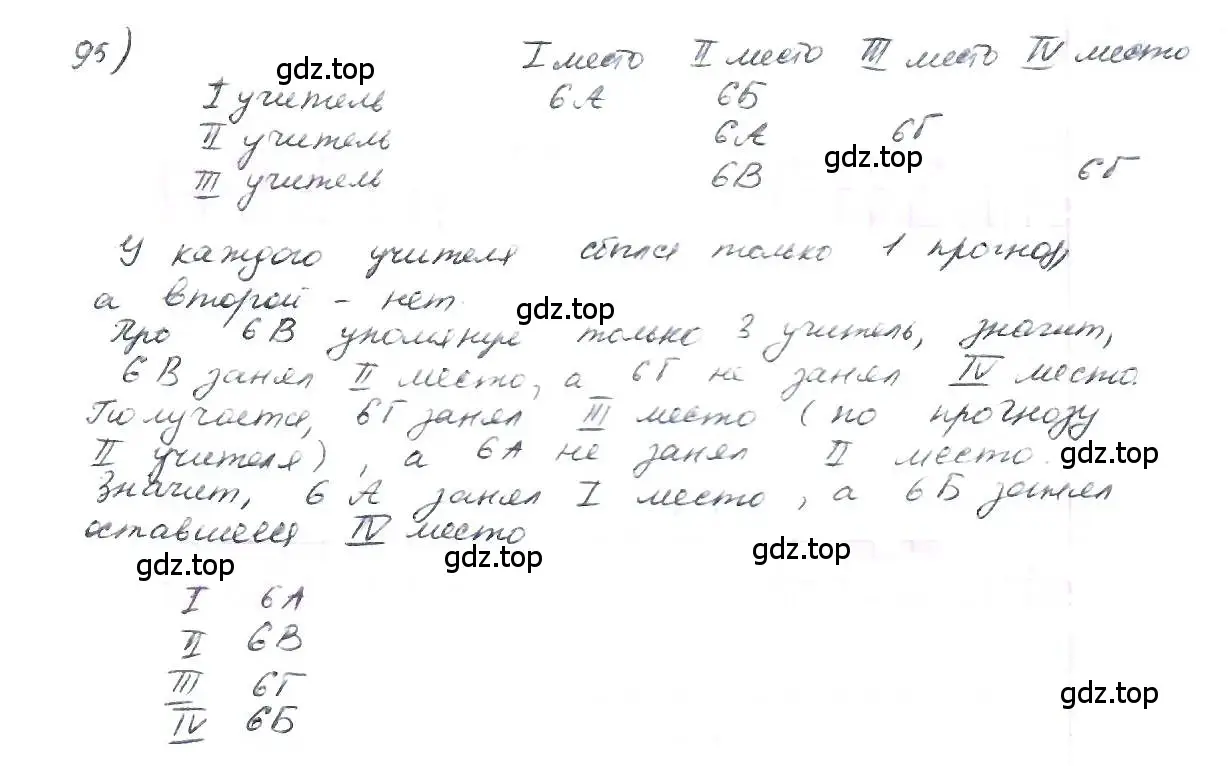 95)
I место II место III место IV место
I учитель 6А 6Б
II учитель 6А 6Г
III учитель 6В 6Г
У каждого учителя сбылся только 1 прогноз,
а второй - нет.
Про 6В упомянул только 3 учитель, значит,
6В занял II место, а 6Г не занял IV место.
Получается, 6Г занял III место (по прогнозу
II учителя), а 6А не занял II место.
Значит, 6А занял I место, а 6Б занял
оставшееся IV место
I 6А
II 6В
III 6Г
IV 6Б
gdz.top
gdz.top
gdz.top
gdz.top
gdz.top
gdz.top
gdz.top
gdz.top